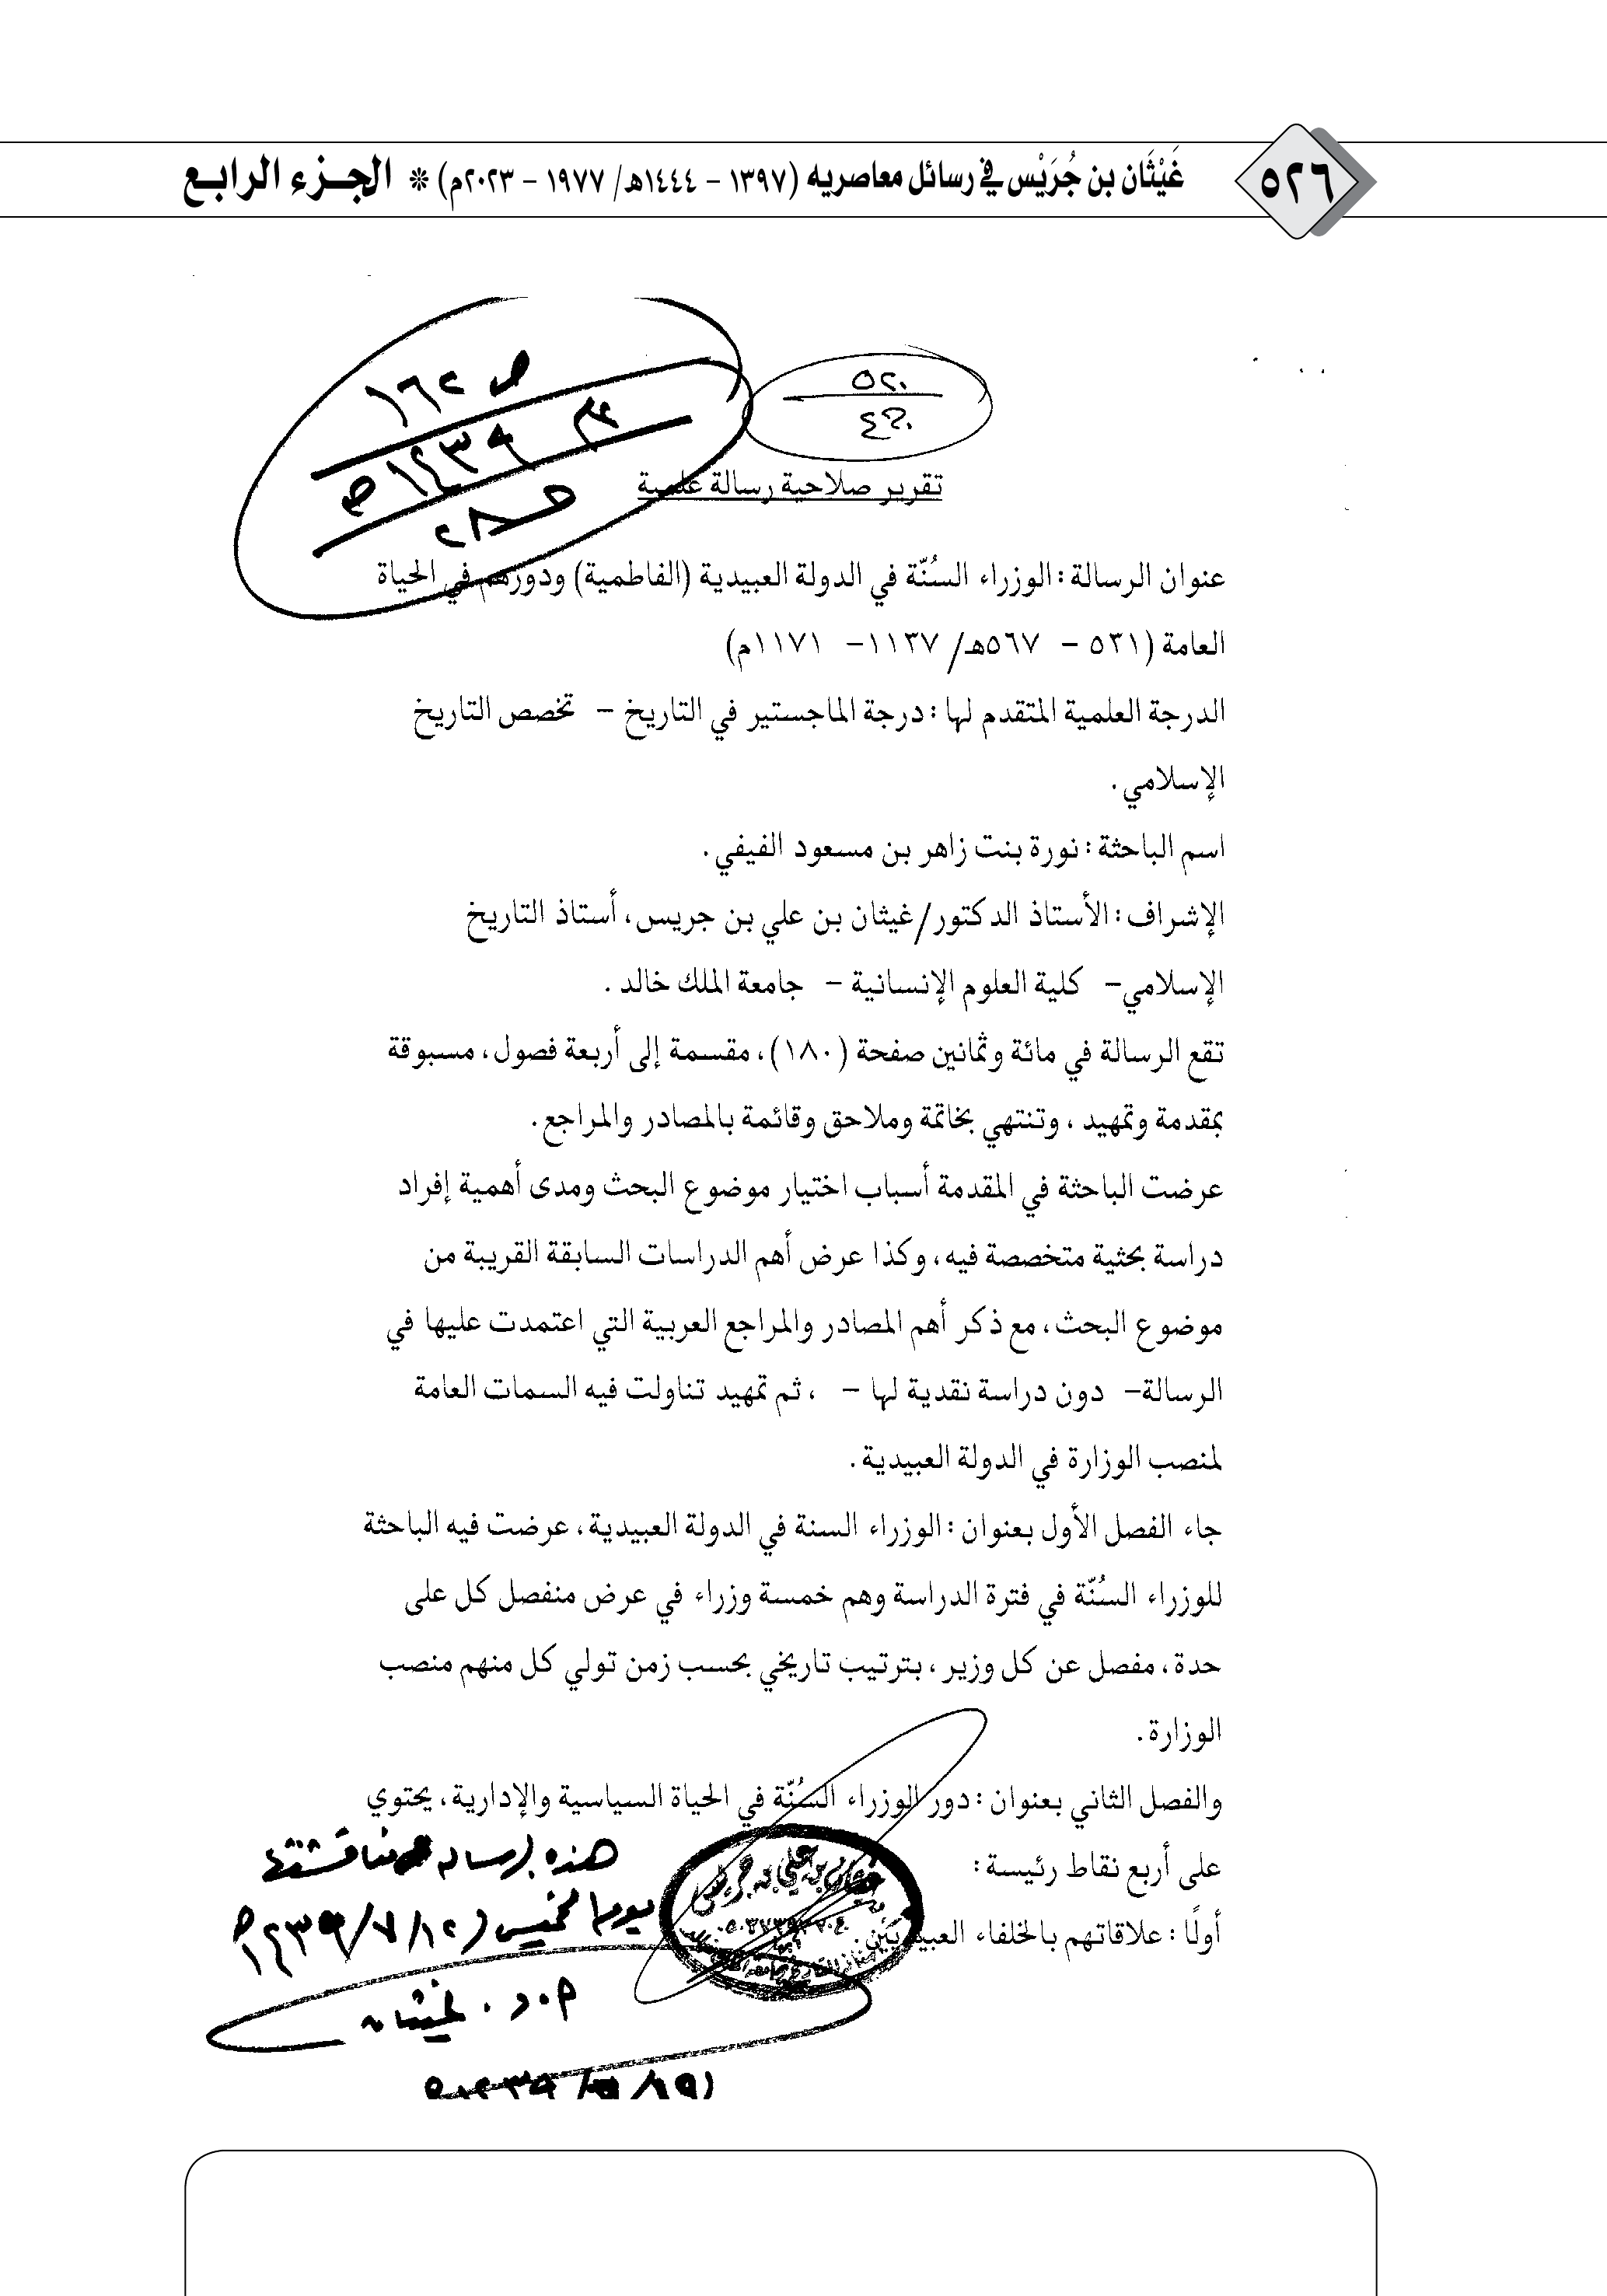 ٥٢٦
غَيْثَان بن جُرَيْس في رسائل معاصريه (١٣٩٧ – ١٤٤٤هـ/ ١٩٧٧ – ٢٠٢٣م) * الجــزء الرابــع
ص ١٦٢
١٤٣٩هـ
٥٢٠
تقرير صلاحية رسالة علمية
عنوان الرسالة : الوزراء السُنّة في الدولة العبيدية (الفاطمية) ودورهم في الحياة
العامة (٥٣١ – ٥٦٧هـ/ ١١٣٧– ١١٧١م)
الدرجة العلمية المتقدم لها : درجة الماجستير في التاريخ – تخصص التاريخ
الإسلامي .
اسم الباحثة : نورة بنت زاهر بن مسعود الفيفي .
الإشراف : الأستاذ الدكتور/غيثان بن علي بن جريس، أستاذ التاريخ
الإسلامي– كلية العلوم الإنسانية – جامعة الملك خالد .
تقع الرسالة في مائة وثمانين صفحة (١٨٠)، مقسمة إلى أربعة فصول، مسبوقة
بمقدمة وتمهيد ، وتنتهي بخاتمة وملاحق وقائمة بالمصادر والمراجع.
عرضت الباحثة في المقدمة أسباب اختيار موضوع البحث ومدى أهمية إفراد
دراسة بحثية متخصصة فيه، وكذا عرض أهم الدراسات السابقة القريبة من
موضوع البحث، مع ذكر أهم المصادر والمراجع العربية التي اعتمدت عليها في
الرسالة– دون دراسة نقدية لها – ، ثم تمهيد تناولت فيه السمات العامة
لمنصب الوزارة في الدولة العبيدية .
جاء الفصل الأول بعنوان : الوزراء السنة في الدولة العبيدية، عرضت فيه الباحثة
للوزراء السُنّة في فترة الدراسة وهم خمسة وزراء في عرض منفصل كل على
حدة، مفصل عن كل وزير ، بترتيب تاريخي بحسب زمن تولي كل منهم منصب
الوزارة.
والفصل الثاني بعنوان : دور الوزراء السُنّة في الحياة السياسية والإدارية، يحتوي
على أربع نقاط رئيسة :
أولًا : علاقاتهم بالخلفاء العبيديين.
هذه الرسالة مناقشتها
يوم الخميس (١٢/٧/١٤٣٩هـ)
أ.د. غيثان